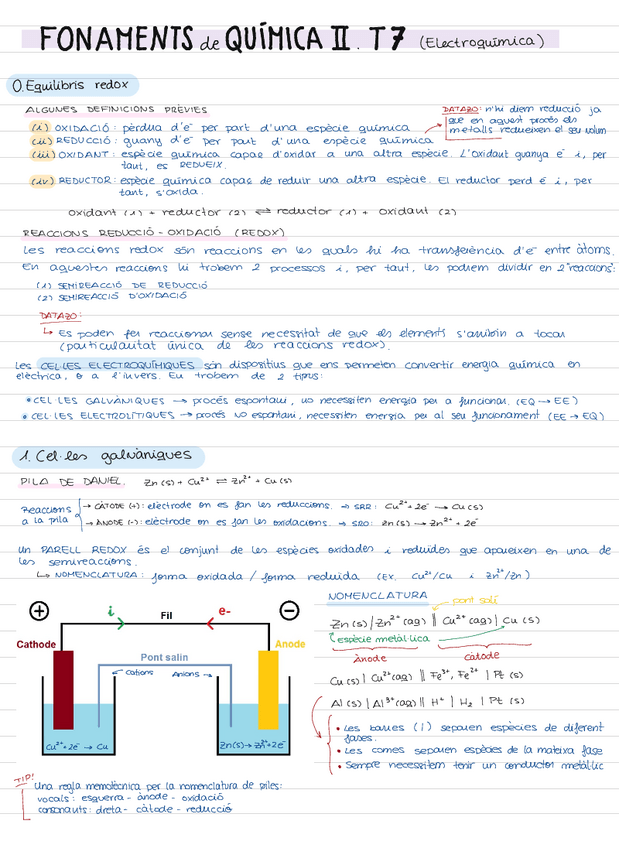 FONAMENTS de QUÍMICA II. T7 (Electroquímica)
0. Equilibris redox
ALGUNES DEFINICIONS PRÈVIES
(i) OXIDACIÓ: pèrdua d'e⁻ per part d'una espècie química
(ii) REDUCCIÓ: guany d'e⁻ per part d'una espècie química
(iii) OXIDANT: espècie química capaç d'oxidar a una altra espècie. L'oxidant guanya e⁻ i, per
tant, es REDUEIX.
(iv) REDUCTOR: espècie química capaç de reduir una altra espècie. El reductor perd e⁻ i, per
tant, s'oxida.
DATAZO: n'hi diem reducció ja
que en aquest procés els
metalls redueixen el seu volum
oxidant (1) + reductor (2) ⇌ reductor (1) + oxidant (2)
REACCIONS REDUCCIÓ-OXIDACIÓ (REDOX)
Les reaccions redox són reaccions en les quals hi ha transferència d'e⁻ entre àtoms.
En aquestes reaccions hi trobem 2 processos i, per tant, les podriem dividir en 2 "reaccions":
(1) SEMIREACCIÓ DE REDUCCIÓ
(2) SEMIREACCIÓ D'OXIDACIÓ
DATAZO:
↳ Es poden fer reaccionar sense necessitat de que els elements s'arribin a tocar
(particularitat única de les reaccions redox).
Les CEL·LES ELECTROQUÍMIQUES són dispositius que ens permeten convertir energia química en
elèctrica, o a l'invers. En trobem de 2 tipus:
• CEL·LES GALVÀNIQUES → procés espontani, no necessiten energia per a funcionar. (EQ → EE)
• CEL·LES ELECTROLÍTIQUES → procés NO espontani, necessiten energia per al seu funcionament (EE → EQ)
1. Cel·les galvàniques
PILA DE DANIEL. Zn(s) + Cu²⁺ ⇌ Zn²⁺ + Cu(s)
Reaccions
a la pila
→ CÀTODE (+): elèctrode on es fan les reduccions. ⇒ SRR: Cu²⁺ + 2e⁻ → Cu(s)
→ ÀNODE (-): elèctrode on es fan les oxidacions. ⇒ SRO: Zn(s) → Zn²⁺ + 2e⁻
Un PARELL REDOX és el conjunt de les espècies oxidades i reduïdes que apareixen en una de
les semireaccions.
↳ NOMENCLATURA: forma oxidada / forma reduïda (Ex. Cu²⁺/Cu i Zn²⁺/Zn)
+ i Fil e- −
Cathode
Anode
Pont salin
← Cations Anions →
Cu²⁺+2e⁻ → Cu
Zn(s) → Zn²⁺+2e⁻
NOMENCLATURA
pont salí
Zn(s) | Zn²⁺(aq) || Cu²⁺(aq) | Cu(s)
espècie metàl·lica
Ànode Càtode
Cu(s) | Cu²⁺(aq) || Fe³⁺, Fe²⁺ | Pt(s)
Al(s) | Al³⁺(aq) || H⁺ | H₂ | Pt(s)
• Les barres (|) separen espècies de diferent
fases.
• Les comes separen espècies de la mateixa fase
• Sempre necessitem tenir un conductor metàl·lic
TIP!
Una regla memotècnica per la nomenclatura de piles:
vocals: esquerra - ànode - oxidació
consonants: dreta - càtode - reducció